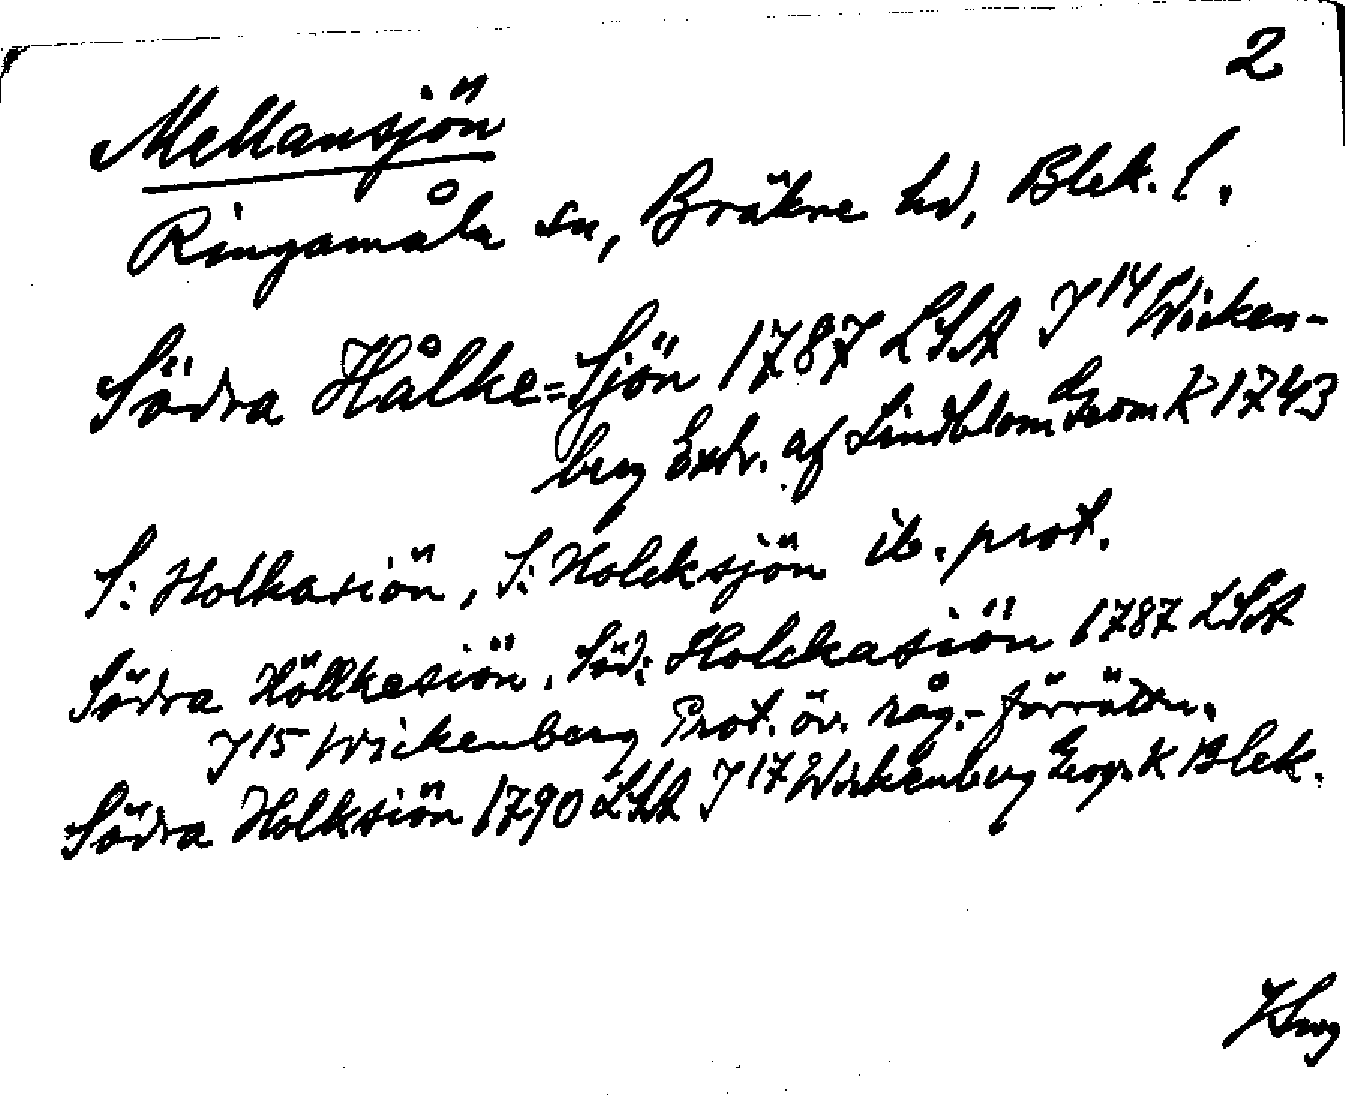 2
Mellansjön
Ringamåla sn, Bräkne hd, Blek. l.
Södra Hålke=Sjön 1787 LSA J 14 Wicken-
berg Extr. af Lindblom Geom K 1743
S: Holkasiön, S: Holcksjön ib. prot.
Södra Höllkesiön, Söd: Holckasiön 1787 LSA
J 15 Wickenberg Prot. öv. råg.-förrättn.
Södra Holksiön 1790 LSA J 17 Wickenberg Geogr. K Blek.